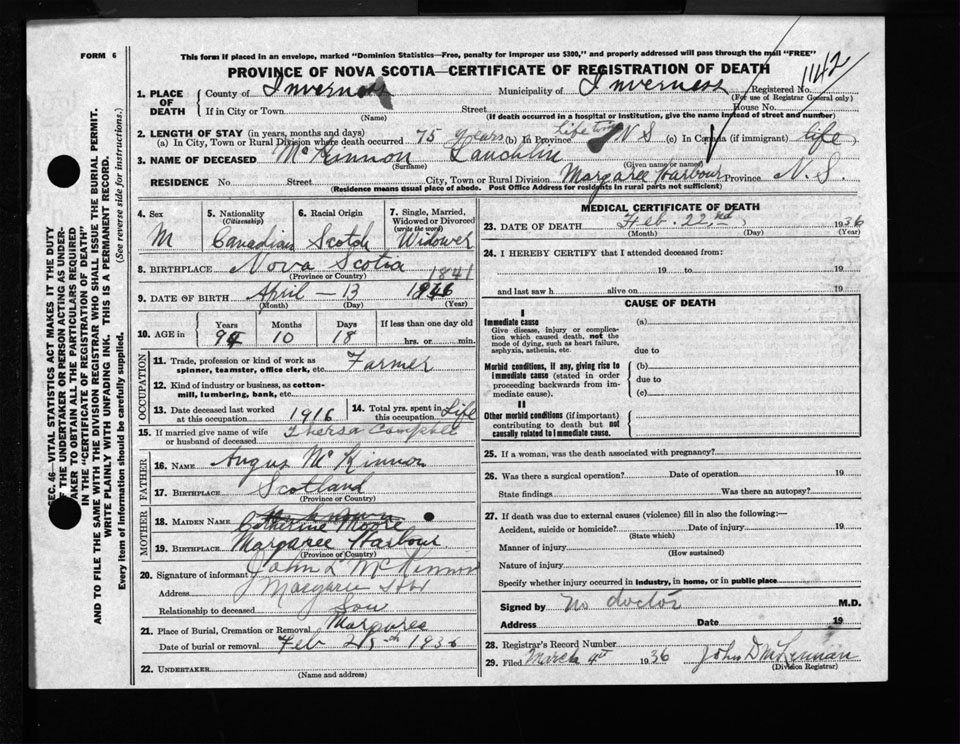 FORM 6
This form if placed in an envelope, marked "Dominion Statistics—Free, penalty for improper use $300," and properly addressed will pass through the mail "FREE"
PROVINCE OF NOVA SCOTIA—CERTIFICATE OF REGISTRATION OF DEATH
1142
1. PLACE OF DEATH
County of Inverness Municipality of Inverness Registered No.
(For use of Registrar General only)
If in City or Town Street House No.
(Name) (If death occurred in a hospital or institution, give the name instead of street and number)
2. LENGTH OF STAY (in years, months and days)
(a) In City, Town or Rural Division where death occurred 75 years (b) In Province life time N S (c) In Canada (if immigrant) life
3. NAME OF DECEASED McKinnon Lauchlin
(Surname) (Given name or names)
RESIDENCE No. Street City, Town or Rural Division Margaree Harbour Province N. S.
(Residence means usual place of abode. Post Office Address for residents in rural parts not sufficient)
4. Sex
M
5. Nationality
(Citizenship)
Canadian
6. Racial Origin
Scotch
7. Single, Married, Widowed or Divorced
(write the word)
Widower
8. BIRTHPLACE Nova Scotia
(Province or Country)
1841
9. DATE OF BIRTH April — 13
(Month) (Day) (Year)
10. AGE in
Years Months Days If less than one day old
10 18 hrs. or min.
OCCUPATION
11. Trade, profession or kind of work as spinner, teamster, office clerk, etc. Farmer
12. Kind of industry or business, as cotton-mill, lumbering, bank, etc.
13. Date deceased last worked at this occupation 1916
14. Total yrs. spent in this occupation Life
15. If married give name of wife or husband of deceased Thersa Campbell
FATHER
16. NAME Angus McKinnon
17. BIRTHPLACE Scotland
(Province or Country)
MOTHER
18. MAIDEN NAME Catherine Moore
19. BIRTHPLACE Margaree Harbour
(Province or Country)
20. Signature of informant John L McKinnon
Address Margaree Hbr
Relationship to deceased Son
21. Place of Burial, Cremation or Removal Margaree
Date of burial or removal Feb 25th 1936
22. UNDERTAKER
(Name and address)
MEDICAL CERTIFICATE OF DEATH
23. DATE OF DEATH Feb. 22nd 1936
(Month) (Day) (Year)
24. I HEREBY CERTIFY that I attended deceased from:
19 to 19
and last saw h alive on 19
CAUSE OF DEATH
I
Immediate cause (a)
Give disease, injury or complication which caused death, not the mode of dying, such as heart failure, asphyxia, asthenia, etc.
due to
Morbid conditions, if any, giving rise to immediate cause (stated in order proceeding backwards from immediate cause).
(b)
due to
(c)
II
Other morbid conditions (if important) contributing to death but not causally related to immediate cause.
25. If a woman, was the death associated with pregnancy?
26. Was there a surgical operation? Date of operation 19
State findings Was there an autopsy?
27. If death was due to external causes (violence) fill in also the following:—
Accident, suicide or homicide? Date of injury 19
(State which)
Manner of injury
(How sustained)
Nature of injury
Specify whether injury occurred in industry, in home, or in public place
Signed by no doctor M.D.
Address Date 19
28. Registrar's Record Number
29. Filed March 4th 1936
(Division Registrar)
SEC. 46—VITAL STATISTICS ACT MAKES IT THE DUTY
OF THE UNDERTAKER OR PERSON ACTING AS UNDER-
TAKER TO OBTAIN ALL THE PARTICULARS REQUIRED
IN THE "CERTIFICATE OF REGISTRATION OF DEATH"
AND TO FILE THE SAME WITH THE DIVISION REGISTRAR WHO SHALL ISSUE THE BURIAL PERMIT.
WRITE PLAINLY WITH UNFADING INK. THIS IS A PERMANENT RECORD.
Every item of information should be carefully supplied. (See reverse side for instructions.)